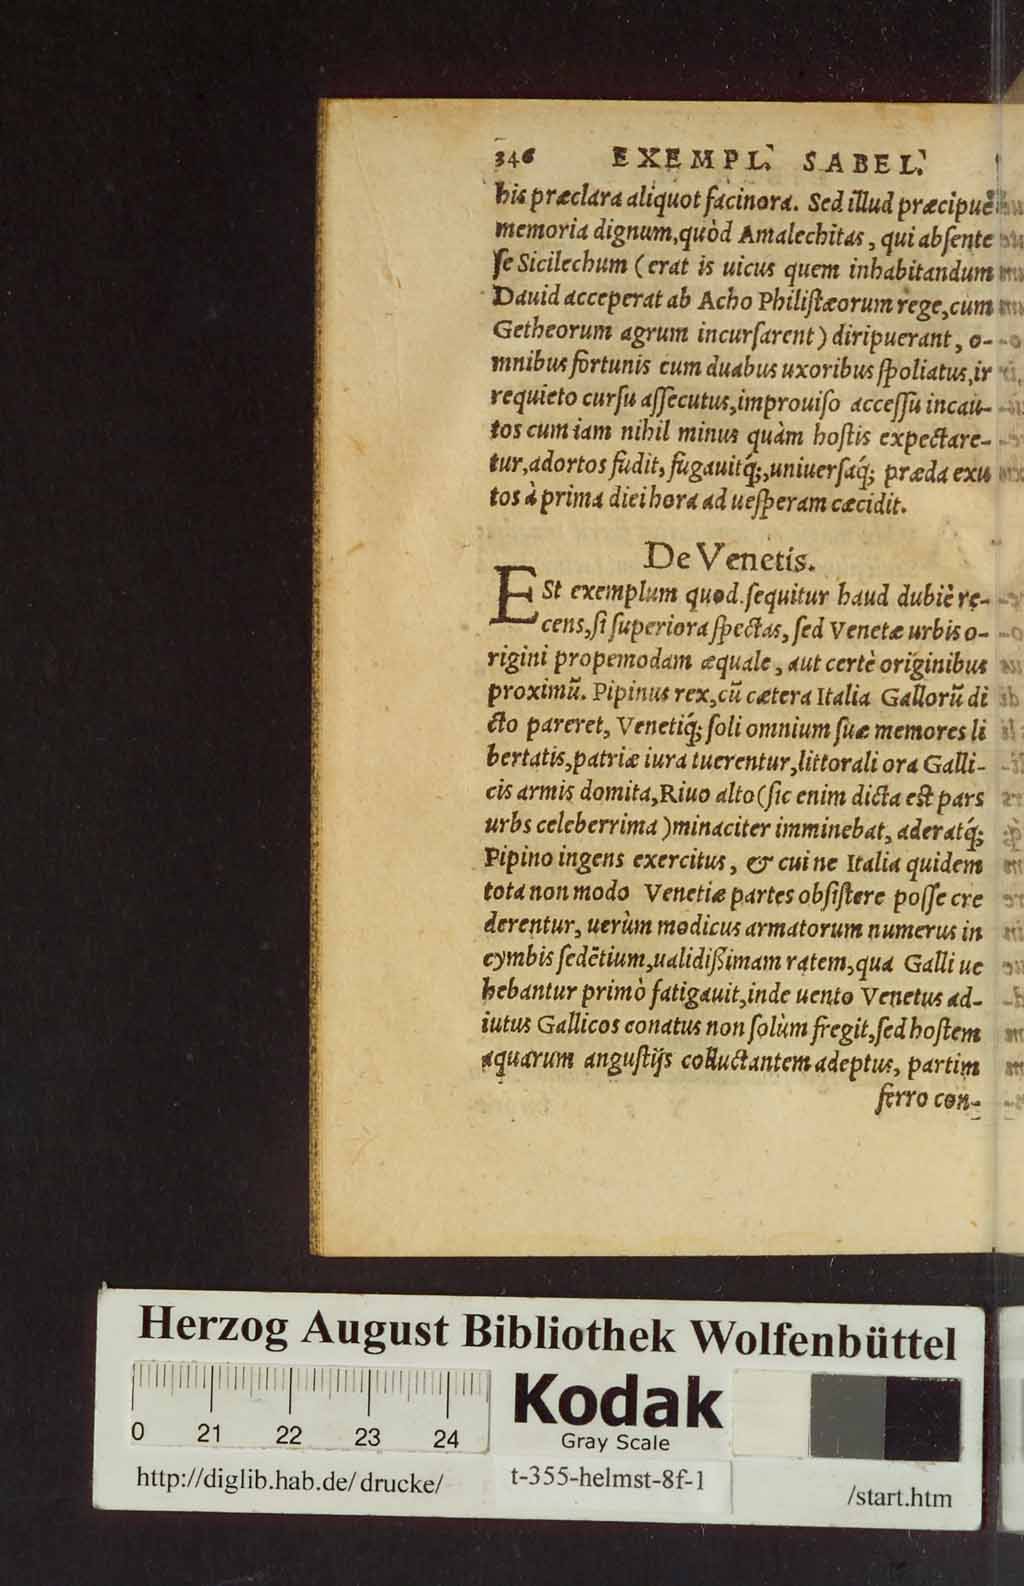 346 EXEMPL. SABEL.
his præclara aliquot facinora. Sed illud præcipuè
memoria dignum, quòd Amalechitas, qui absente
se Sicilechum (erat is uicus quem inhabitandum
Dauid acceperat ab Acho Philistæorum rege, cùm
Getheorum agrum incursarent) diripuerant, o-
mnibus fortunis cum duabus uxoribus spoliatus, ir
requieto cursu assecutus, improuiso accessu incau-
tos cum iam nihil minus quàm hostis expectare-
tur, adortos fudit, fugauitq́;, uniuersaq́; præda exu
tos à prima diei hora ad uesperam cæcidit.
De Venetis.
ESt exemplum quod sequitur haud dubiè re-
cens, si superiora spectas, sed Venetæ urbis o-
rigini propemodam æquale, aut certè originibus
proximũ. Pipinus rex, cũ cætera Italia Gallorũ di
cto pareret, Venetiq́; soli omnium suæ memores li
bertatis, patriæ iura tuerentur, littorali ora Galli-
cis armis domita, Riuo alto (sic enim dicta est pars
urbs celeberrima) minaciter imminebat, aderatq́;
Pipino ingens exercitus, & cui ne Italia quidem
tota non modo Venetiæ partes obsistere posse cre
derentur, uerùm modicus armatorum numerus in
cymbis sedẽtium, ualidißimam ratem, qua Galli ue
hebantur primò fatigauit, inde uento Venetus ad-
iutus Gallicos conatus non solùm fregit, sed hostem
aquarum angustijs colluctantem adeptus, partim
ferro con-
Herzog August Bibliothek Wolfenbüttel
0 21 22 23 24
Kodak
Gray Scale
http://diglib.hab.de/drucke/ t-355-helmst-8f-1 /start.htm